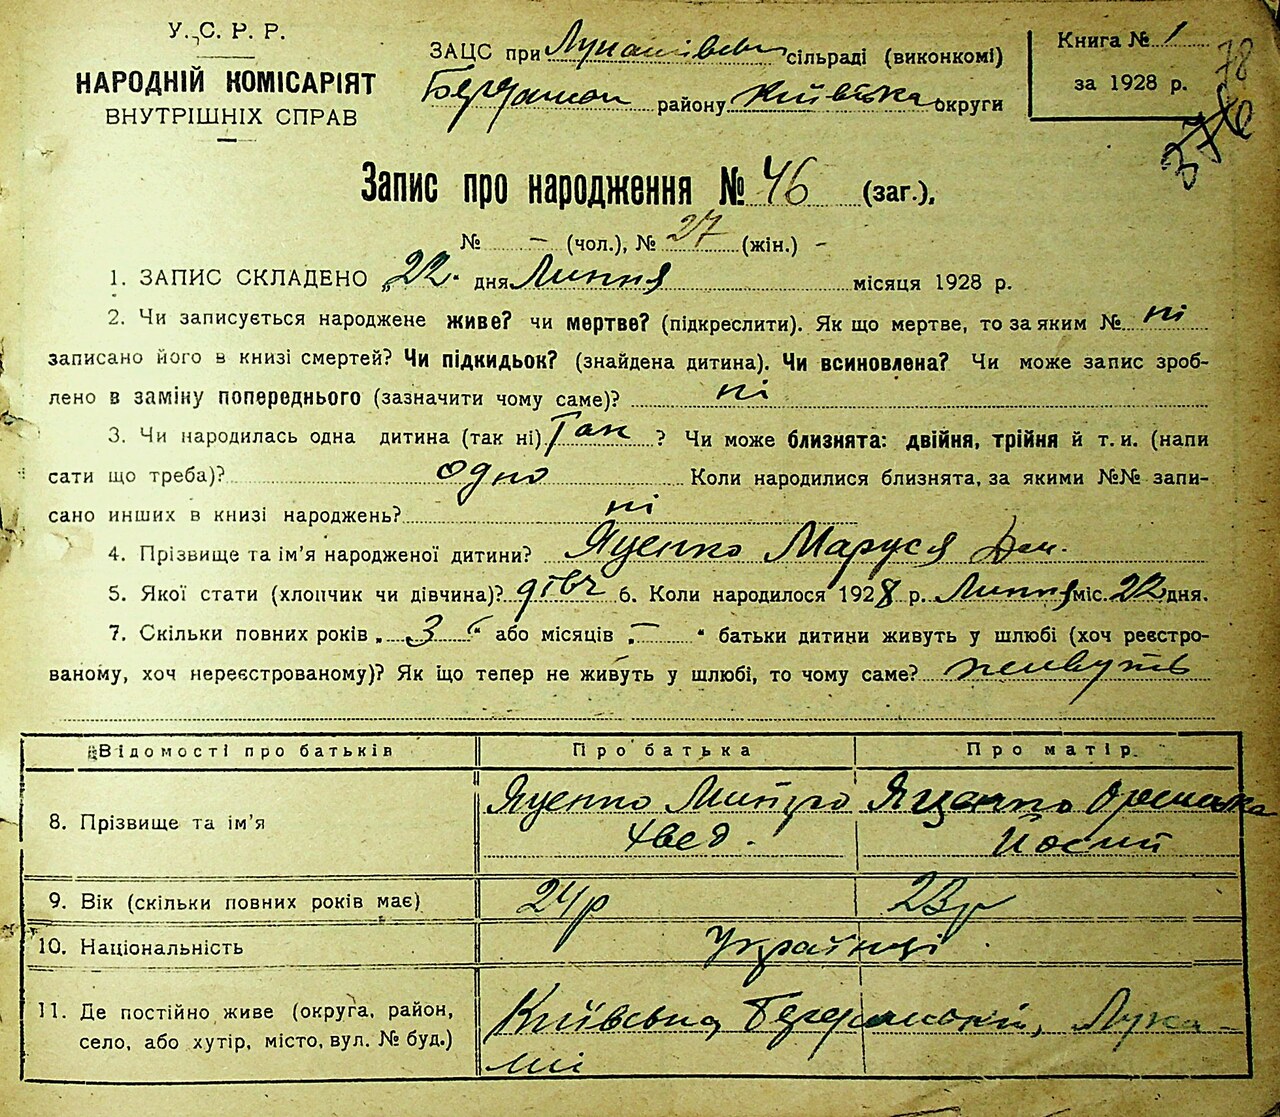 У. С. Р. Р.
НАРОДНІЙ КОМІСАРІЯТ
ВНУТРІШНІХ СПРАВ
ЗАЦС при Лукашівськ сільраді (виконкомі)
району Київська округи
Книга № 1
за 1928 р.
78
376
Запис про народження № 46 (заг.),
№ - (чол.), № 27 (жін.) -
1. ЗАПИС СКЛАДЕНО „22" дня Липня місяця 1928 р.
2. Чи записується народжене живе? чи мертве? (підкреслити). Як що мертве, то за яким № ні
записано його в книзі смертей? Чи підкидьок? (знайдена дитина). Чи всиновлена? Чи може запис зроб-
лено в заміну попереднього (зазначити чому саме)? ні
3. Чи народилась одна дитина (так ні) Так ? Чи може близнята: двійня, трійня й т. и. (напи
сати що треба)? одно Коли народилися близнята, за якими №№ запи-
сано инших в книзі народжень? ні
4. Прізвище та ім’я народженої дитини? Яценко Маруся Дм.
5. Якої стати (хлопчик чи дівчина)? дівч 6. Коли народилося 1928 р. Липня міс. 22 дня.
7. Скільки повних років „ 3 “ або місяців „ — “ батьки дитини живуть у шлюбі (хоч реєстро-
ваному, хоч нереєстрованому)? Як що тепер не живуть у шлюбі, то чому саме? живуть
Відомості про батьків Про батька Про матір
8. Прізвище та ім’я Яценко Митро Хвед. Яценко Оришка Йосип
9. Вік (скільки повних років має) 24р 23р
10. Національність Українці
11. Де постійно живе (округа, район, Київська, Лука-
село, або хутір, місто, вул. № буд.) ші